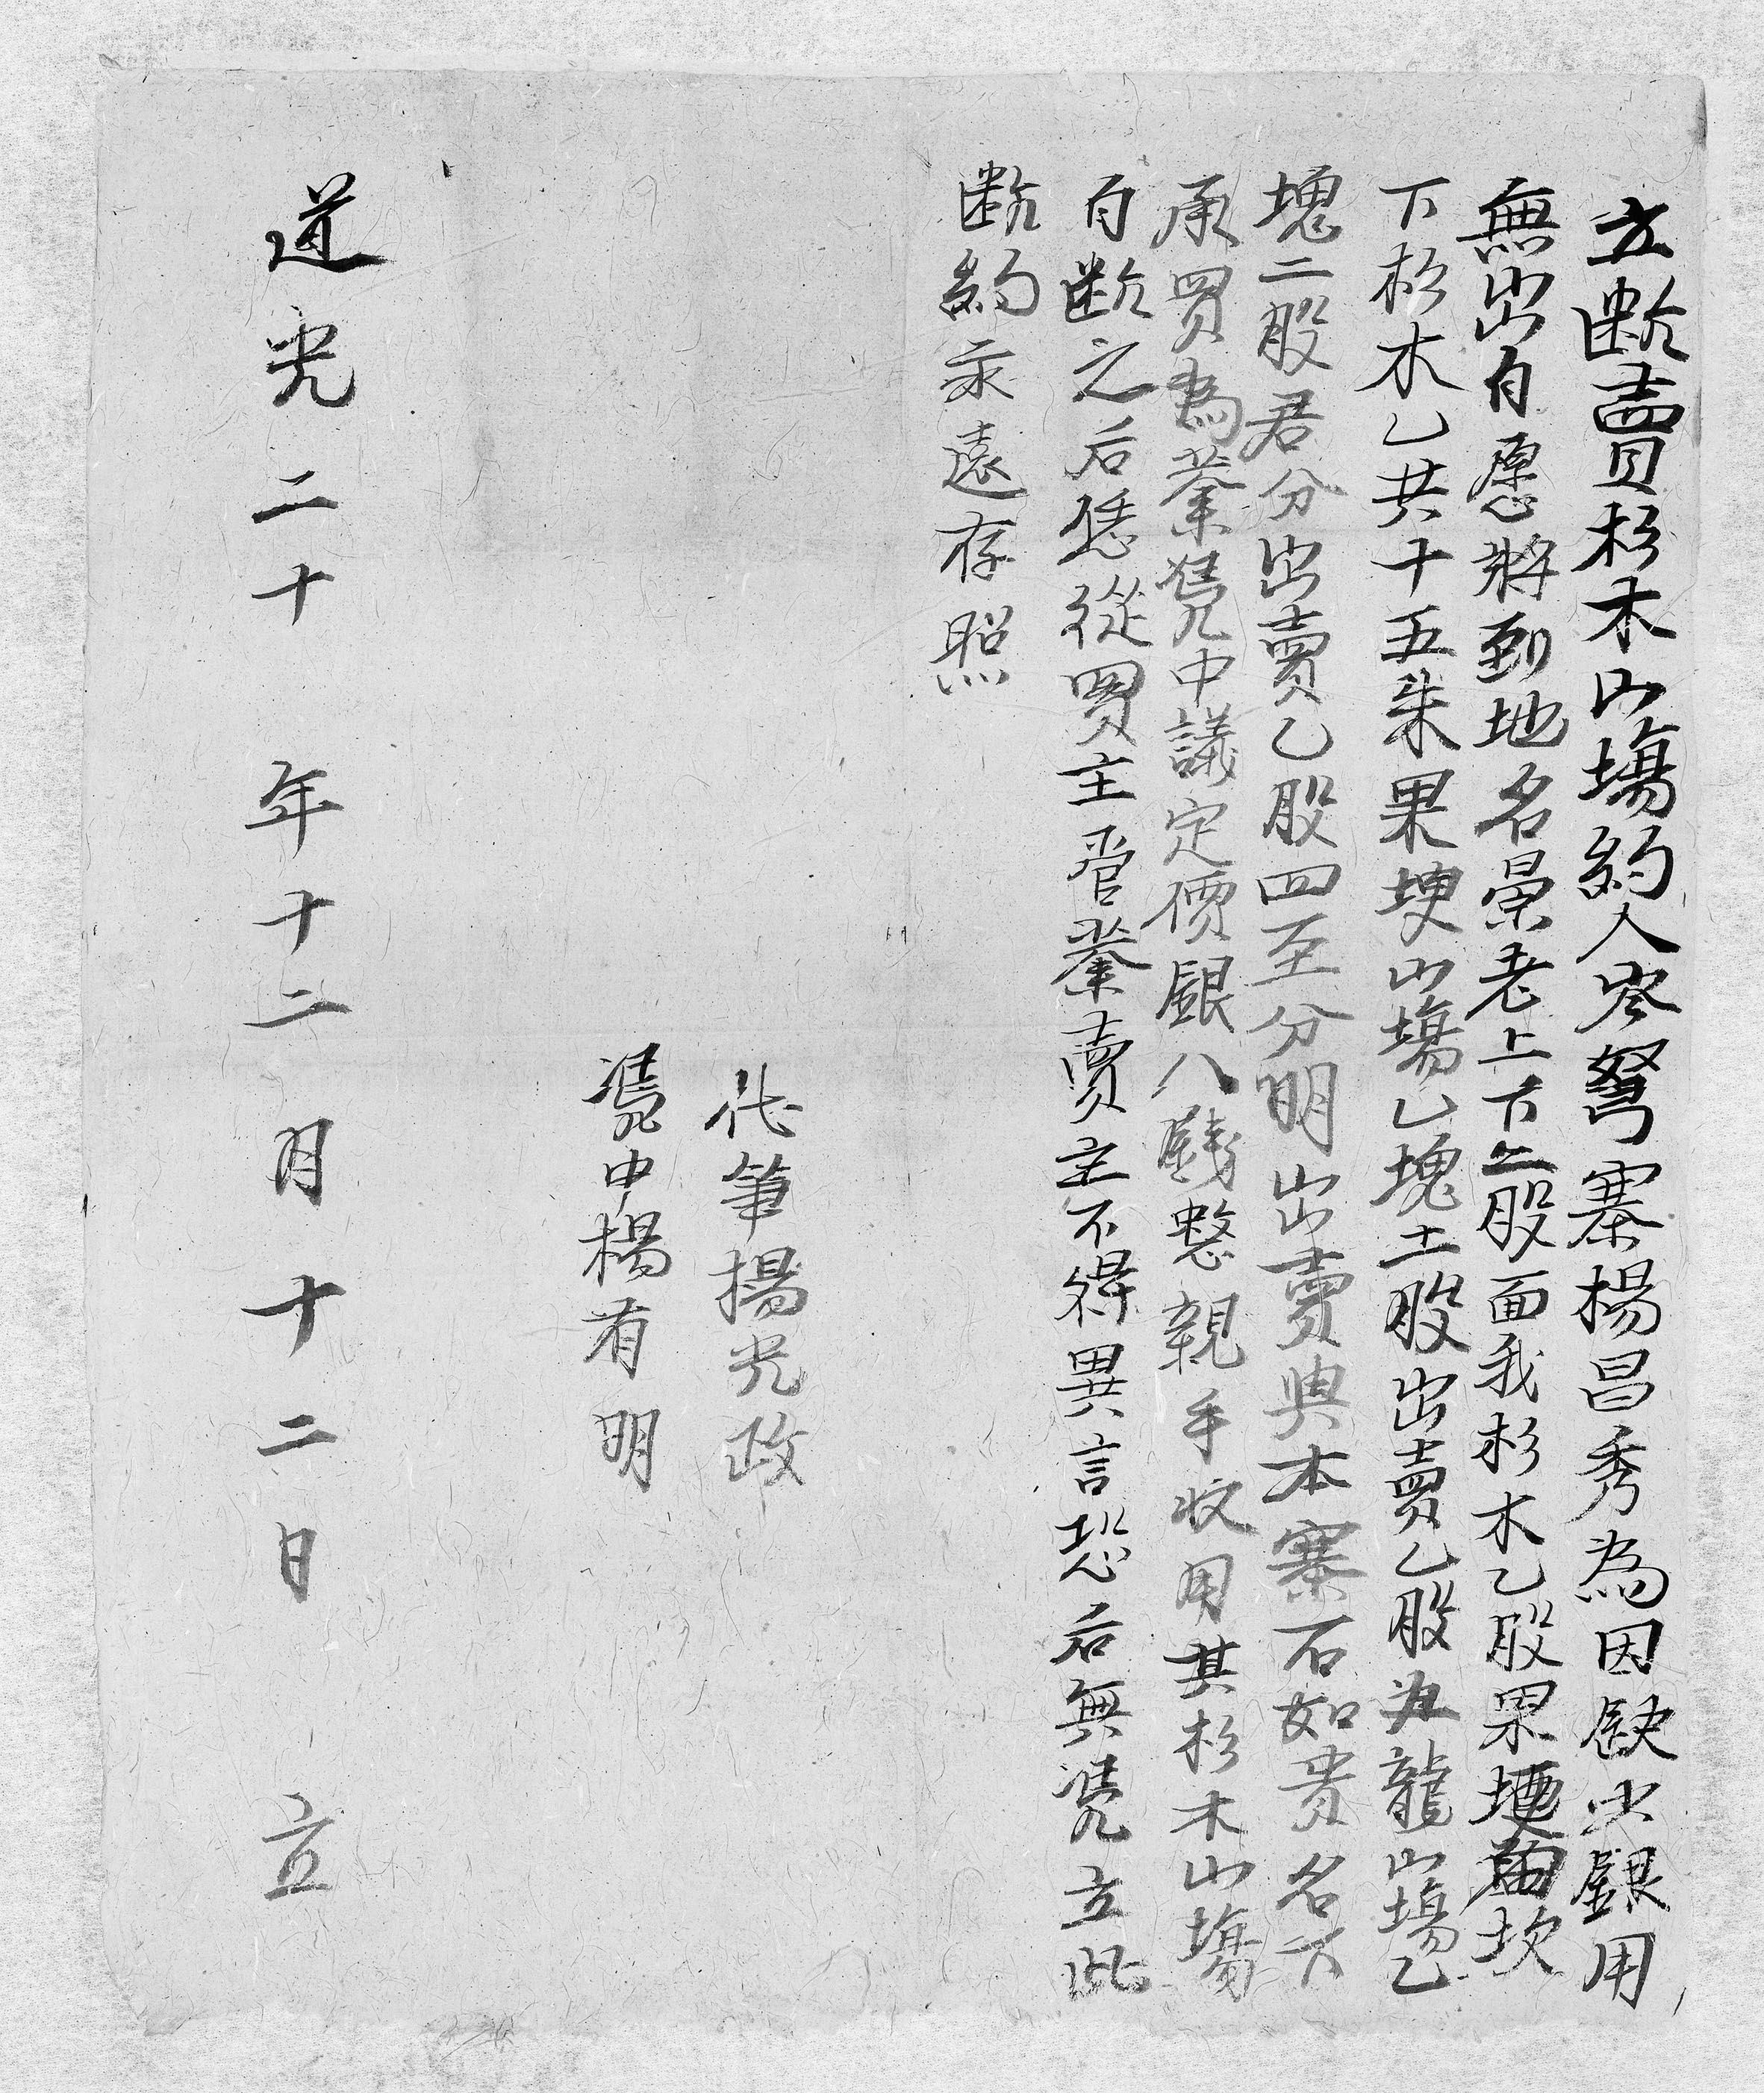 立断賣杉木山塲約人岑弩寨楊昌秀為因缺少銀用
無出自愿將到地名景老上下二股面我杉木乙股果埂坎
下杉木乙共十五朱果埂山塲乙塊土股出賣乙股為龍山塲乙
塊二股君分出賣乙股四至分明出賣與本寨石如貴名下
承買為業憑中議定價銀八錢整親手收用其杉木山塲
自断之后恁從買主管業賣主不得異言恐后無憑立此
断約永遠存照
代筆楊光政
憑中楊有明
道光二十年十二月十二日立